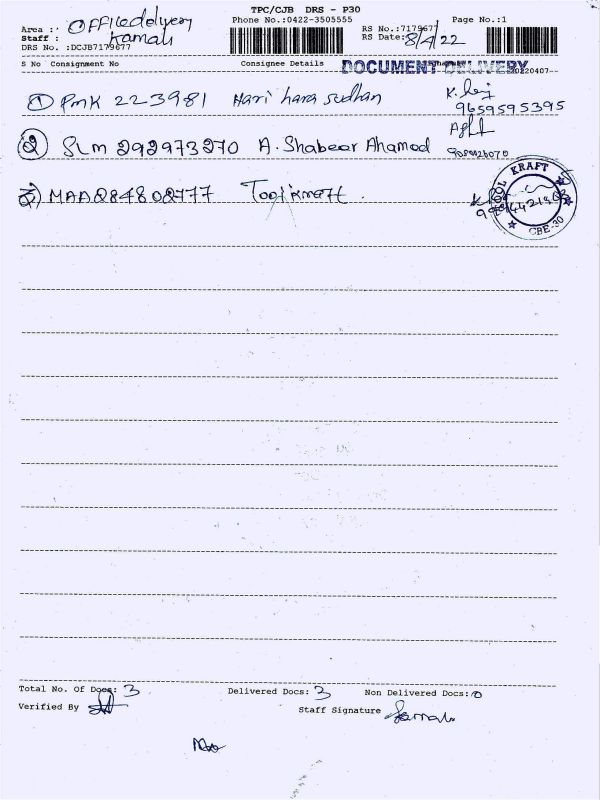 TPC/CJB DRS - P30
Area :: Office delivery
Phone No.:0422-3505555
RS No.:7179677
Page No.:1
Staff : Kamali
RS Date: 8/4/22
DRS No. :DCJB7179677
S No Consignment No
Consignee Details
DOCUMENT DELIVERY
20220407-
① PMK 223981 Hari hara sudhan
9659595395
② SLM 292973270 A. Shabeer Ahamed
3) MAA284802777 Toolkraft.
TOOL KRAFT
CBE-30
Total No. Of Docs: 3
Delivered Docs: 3
Non Delivered Docs: 0
Verified By
Staff Signature Kamali